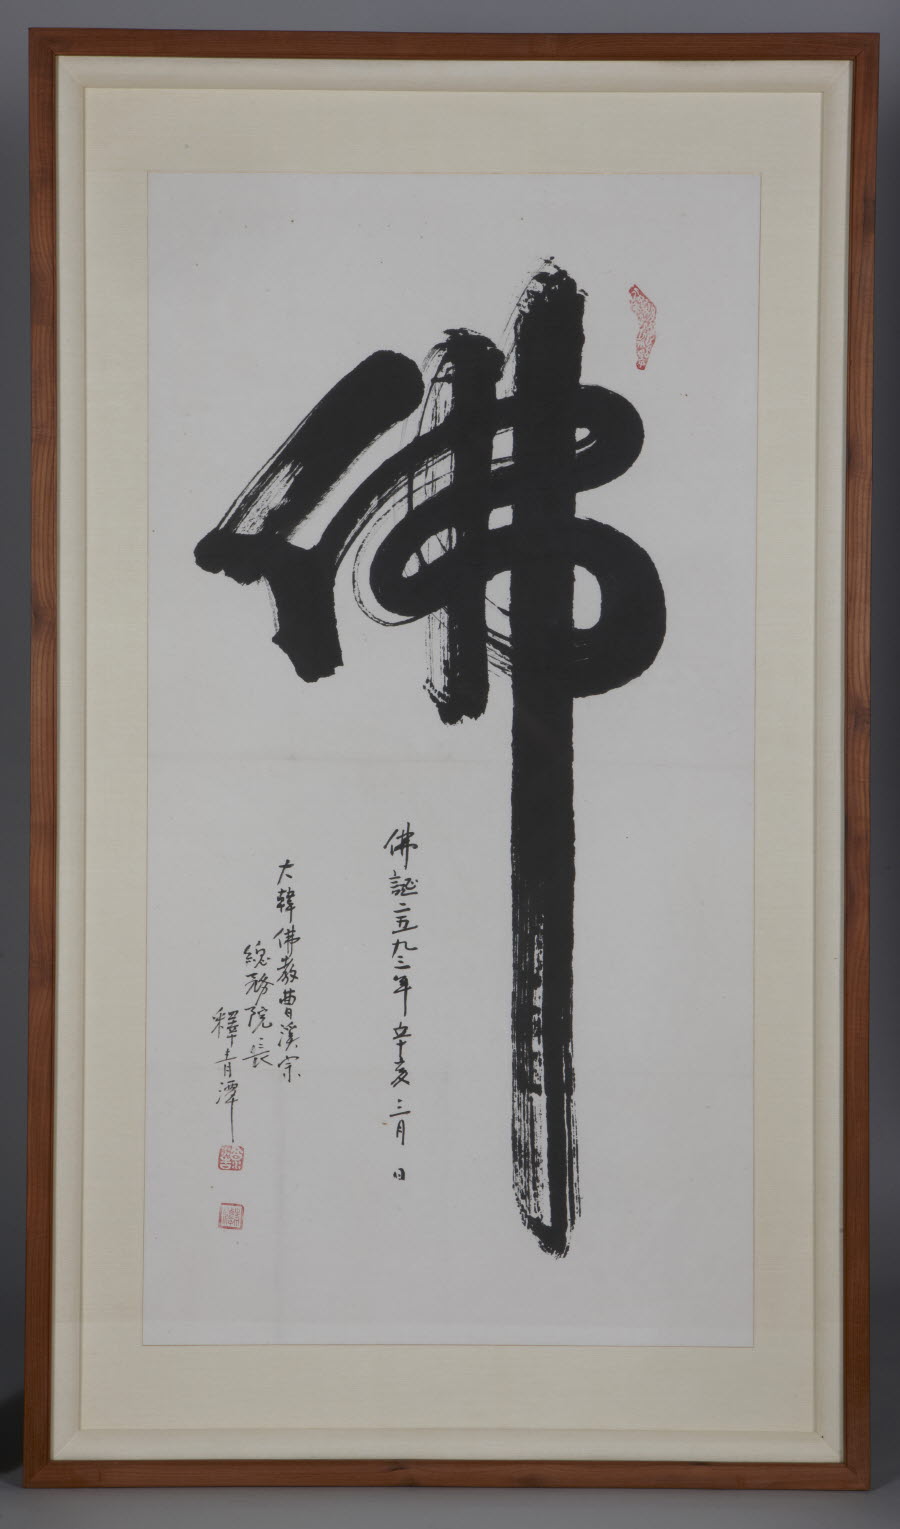 佛
佛誕二五九三年辛亥三月 日
大韓佛教曹溪宗
總務院長
釋青潭